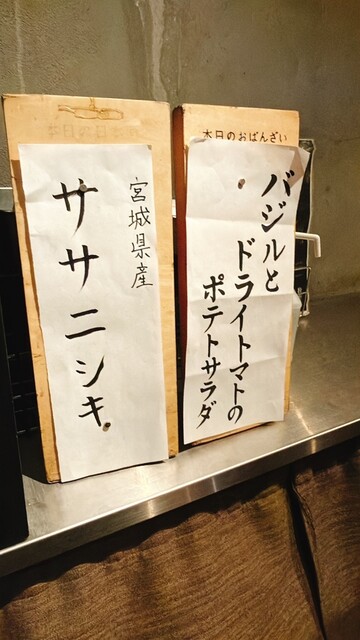 本日のおばんざい
バジルと
ドライトマトの
ポテトサラダ
宮城県産
ササニシキ。